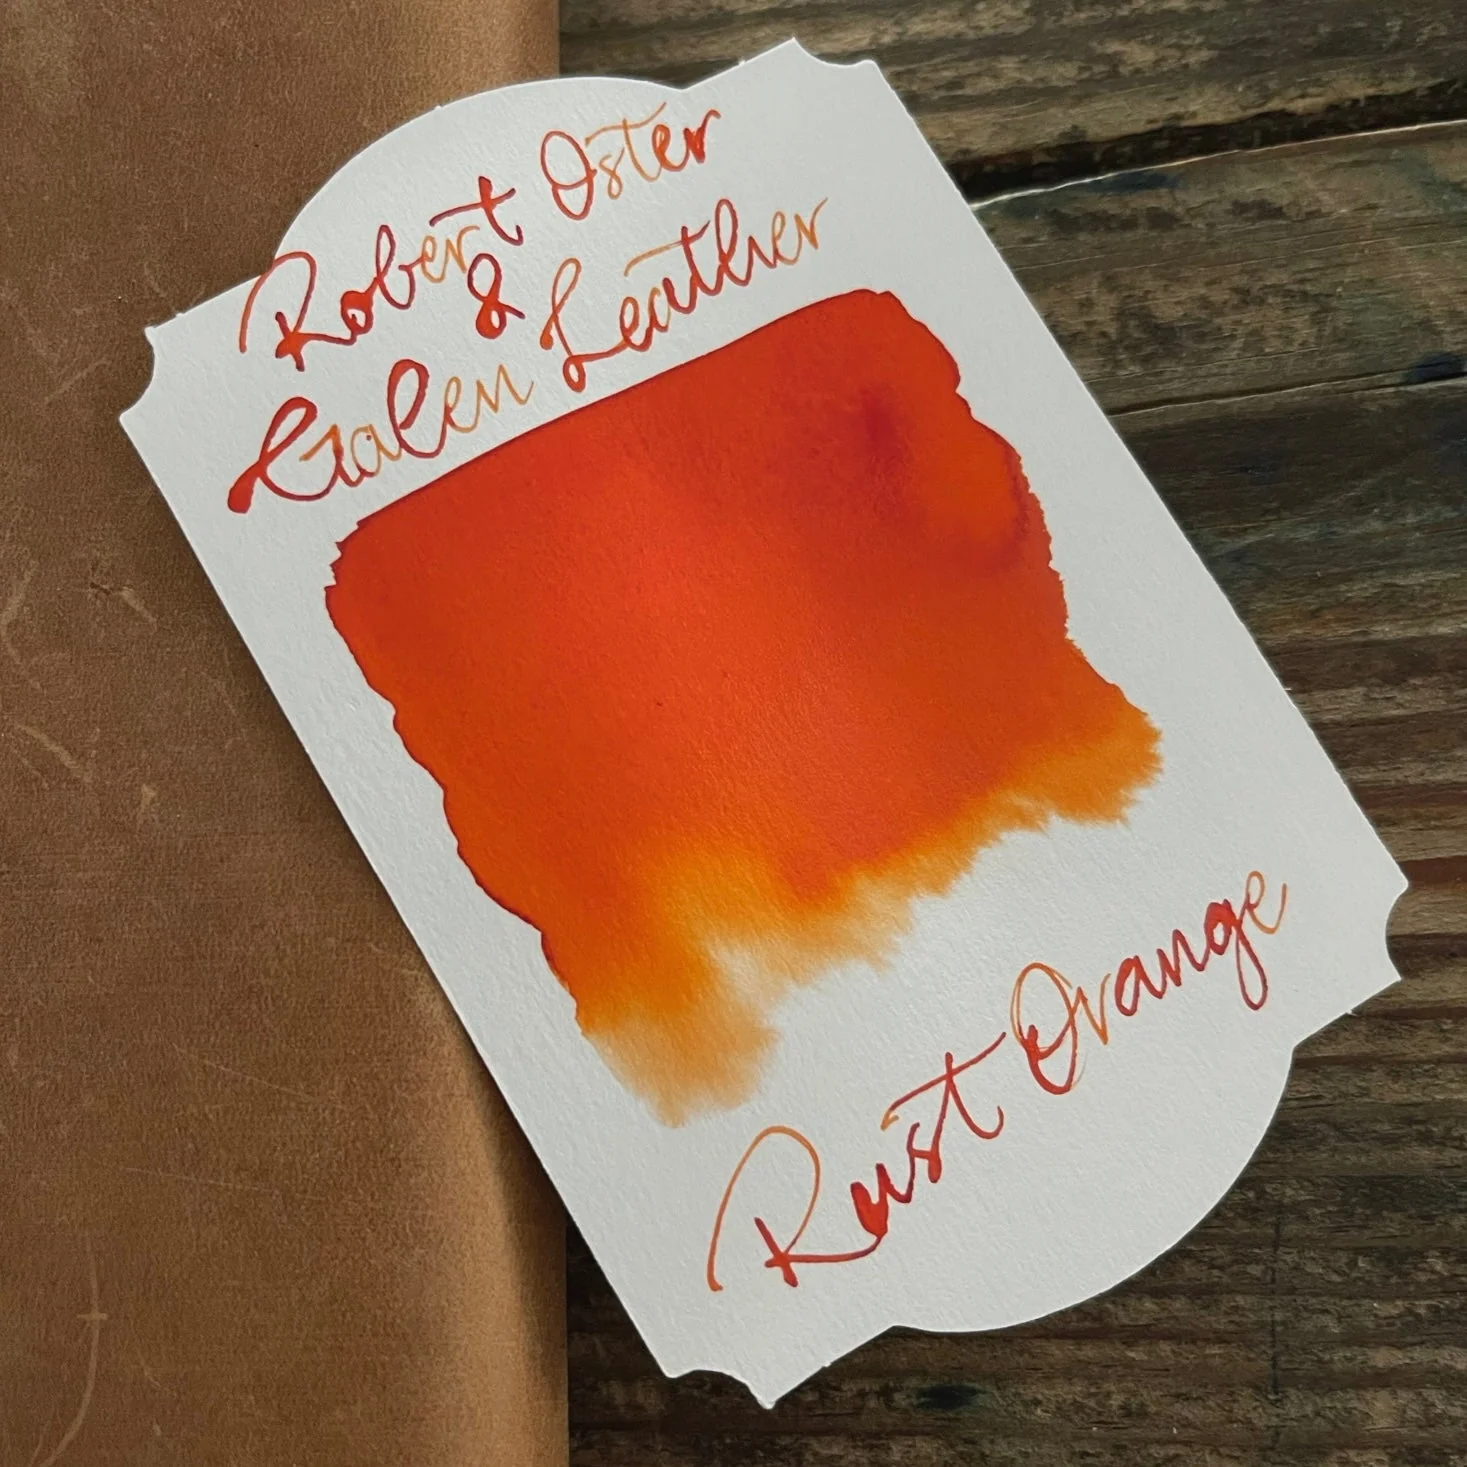 Robert Oster
&
Galen Leather
Rust Orange